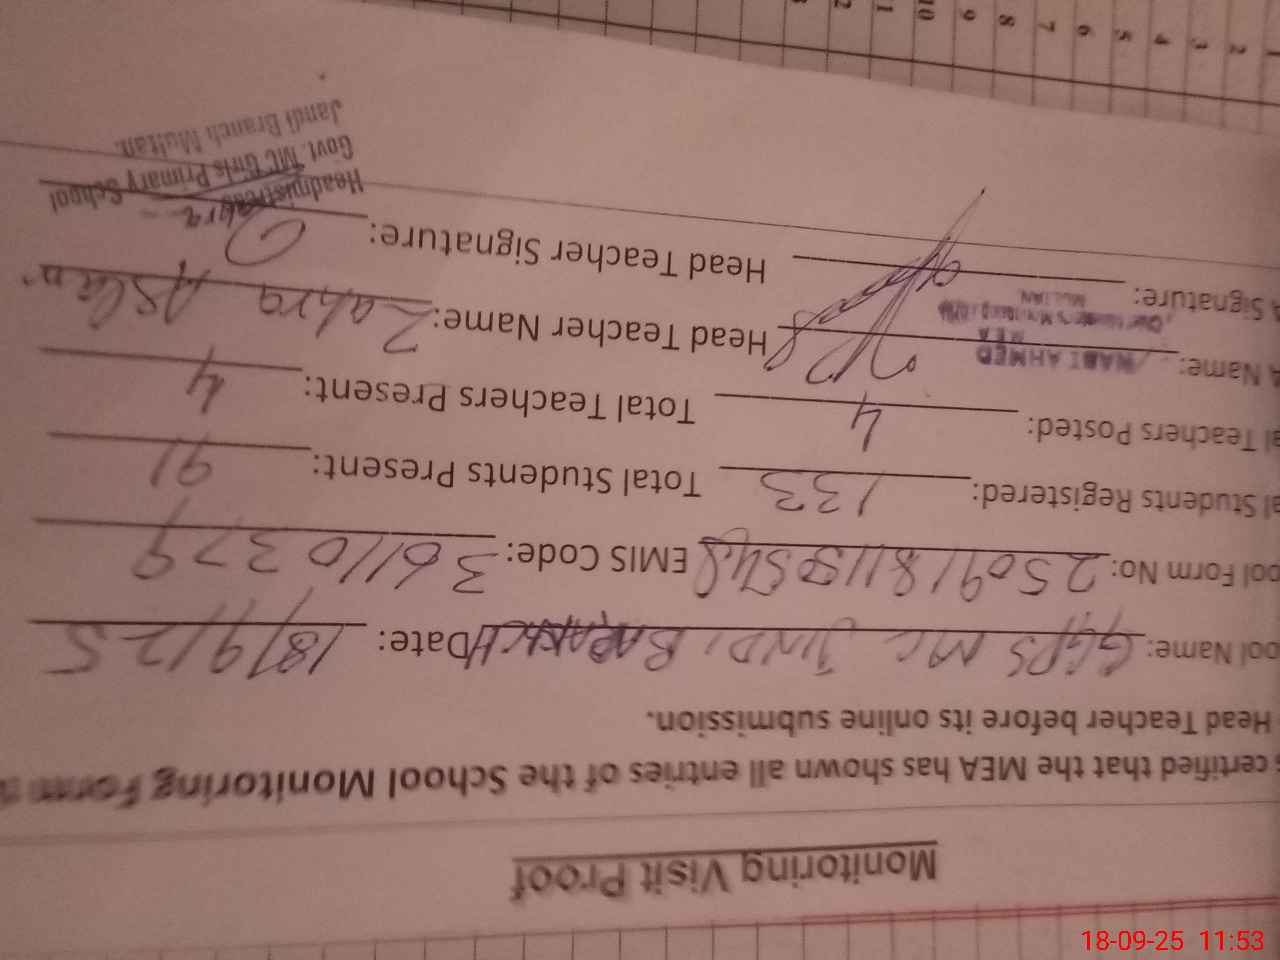 Monitoring Visit Proof
certified that the MEA has shown all entries of the School Monitoring Form
Head Teacher before its online submission.
ool Name: GGPS MC JINDI BARANCH Date: 18/9/25
ool Form No: EMIS Code: 36110379
al Students Registered: 133 Total Students Present: 91
al Teachers Posted: 4 Total Teachers Present: 4
A Name: NABI AHMED Head Teacher Name: Zahra Aslam
MEA
MULTAN
Signature: Head Teacher Signature: Zahra
Headmistress
Govt. MC Girls Primary School
Jandi Branch Multan.
1 2 3 4 5 6 7 8 9 10 11 12
18-09-25 11:53